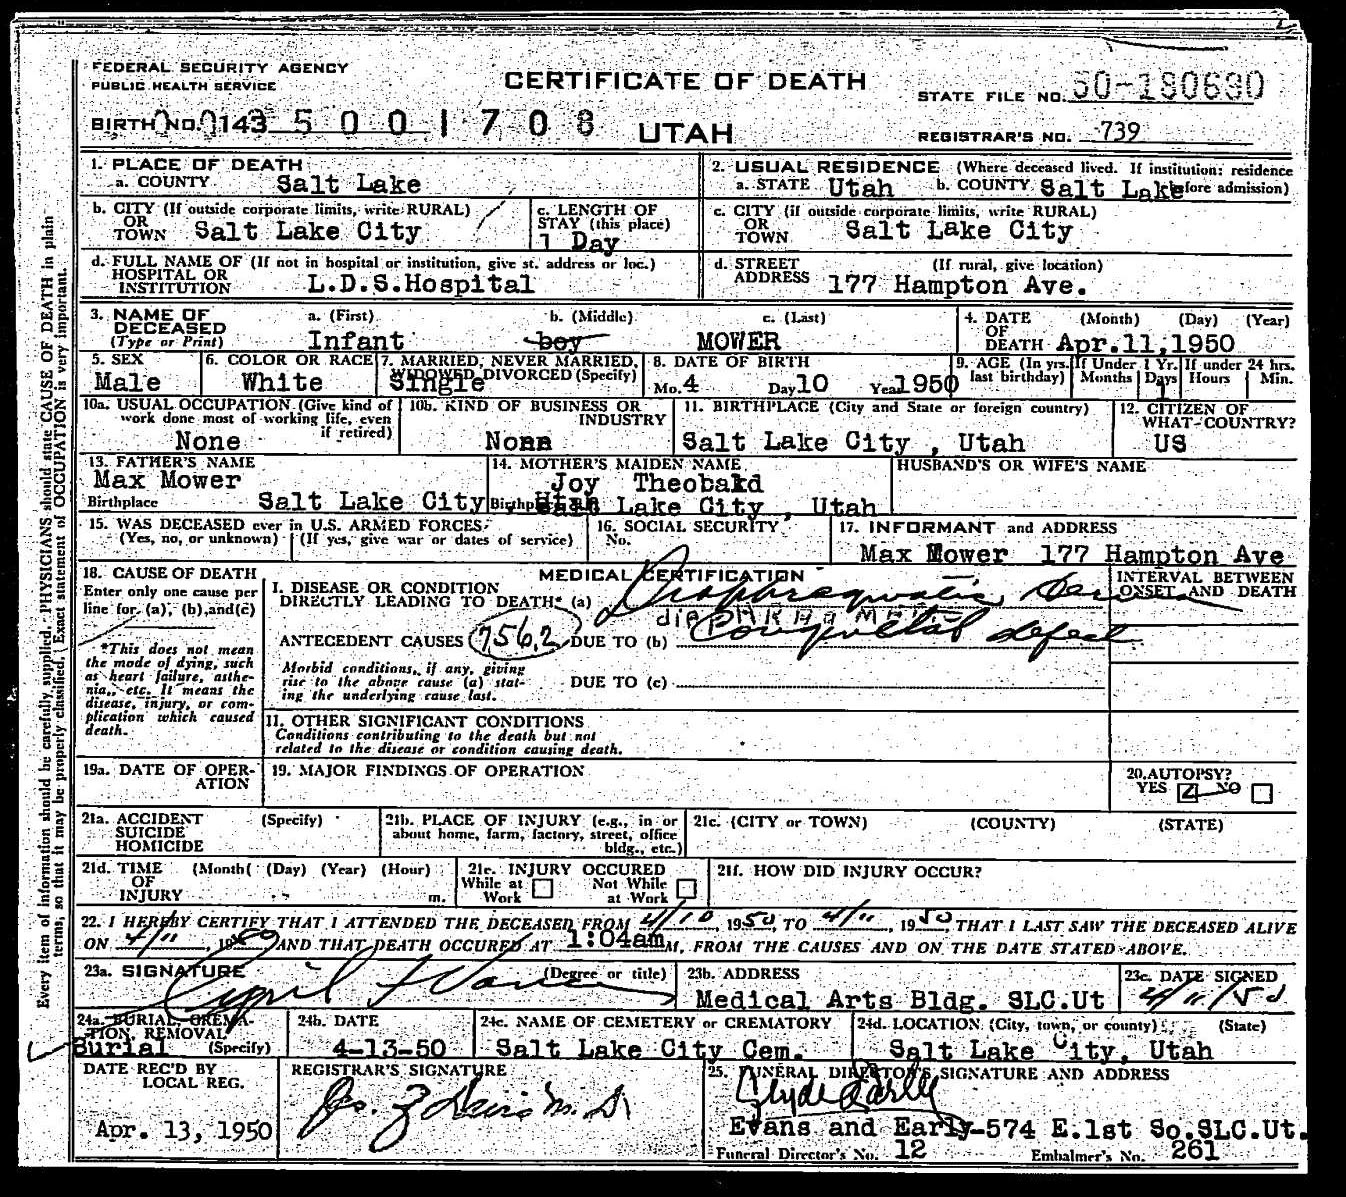 FEDERAL SECURITY AGENCY
PUBLIC HEALTH SERVICE
CERTIFICATE OF DEATH
STATE FILE NO. 50-180680
BIRTH NO. 143 5001708
UTAH
REGISTRAR'S NO. 739
1. PLACE OF DEATH
a. COUNTY Salt Lake
2. USUAL RESIDENCE (Where deceased lived. If institution: residence
a. STATE Utah b. COUNTY Salt Lake before admission)
b. CITY (If outside corporate limits, write RURAL)
OR
TOWN Salt Lake City
c. LENGTH OF
STAY (this place)
1 Day
c. CITY (if outside corporate limits, write RURAL)
OR
TOWN Salt Lake City
d. FULL NAME OF (If not in hospital or institution, give st. address or loc.)
HOSPITAL OR
INSTITUTION L.D.S.Hospital
d. STREET (If rural, give location)
ADDRESS 177 Hampton Ave.
3. NAME OF a. (First) b. (Middle) c. (Last)
DECEASED
(Type or Print) Infant boy MOWER
4. DATE (Month) (Day) (Year)
OF
DEATH Apr.11,1950
5. SEX
Male
6. COLOR OR RACE
White
7. MARRIED, NEVER MARRIED,
WIDOWED DIVORCED (Specify)
Single
8. DATE OF BIRTH
Mo. 4 Day 10 Year 1950
9. AGE (In yrs. last birthday)
If Under 1 Yr.
Months Days
1
If under 24 hrs.
Hours Min.
10a. USUAL OCCUPATION (Give kind of
work done most of working life, even
if retired)
None
10b. KIND OF BUSINESS OR
INDUSTRY
None
11. BIRTHPLACE (City and State or foreign country)
Salt Lake City , Utah
12. CITIZEN OF
WHAT-COUNTRY?
US
13. FATHER'S NAME
Max Mower
Birthplace Salt Lake City, Utah
14. MOTHER'S MAIDEN NAME
Joy Theobald
Birthplace Salt Lake City , Utah
HUSBAND'S OR WIFE'S NAME
15. WAS DECEASED ever in U.S. ARMED FORCES
(Yes, no, or unknown) (If yes, give war or dates of service)
16. SOCIAL SECURITY
No.
17. INFORMANT and ADDRESS
Max Mower 177 Hampton Ave
18. CAUSE OF DEATH
Enter only one cause per
line for (a), (b), and (c)
MEDICAL CERTIFICATION
INTERVAL BETWEEN
ONSET AND DEATH
I. DISEASE OR CONDITION
DIRECTLY LEADING TO DEATH* (a) Diaphragmatic Hernia
diaphragmatic
ANTECEDENT CAUSES 756.2 DUE TO (b) Congenital defect
*This does not mean
the mode of dying, such
as heart failure, asthe-
nia, etc. It means the
disease, injury, or com-
plication which caused
death.
Morbid conditions, if any, giving
rise to the above cause (a) stat-
ing the underlying cause last.
DUE TO (c)
11. OTHER SIGNIFICANT CONDITIONS
Conditions contributing to the death but not
related to the disease or condition causing death.
19a. DATE OF OPER-
ATION
19. MAJOR FINDINGS OF OPERATION
20. AUTOPSY?
YES NO
21a. ACCIDENT (Specify)
SUICIDE
HOMICIDE
21b. PLACE OF INJURY (e.g., in or
about home, farm, factory, street, office
bldg., etc.)
21c. (CITY or TOWN) (COUNTY) (STATE)
21d. TIME (Month( (Day) (Year) (Hour)
OF
INJURY m.
21e. INJURY OCCURED
While at Work Not While at Work
21f. HOW DID INJURY OCCUR?
22. I HEREBY CERTIFY THAT I ATTENDED THE DECEASED FROM 4/10, 1950, TO 4/11, 1950, THAT I LAST SAW THE DECEASED ALIVE
ON 4/11, 1950 AND THAT DEATH OCCURED AT 1:04am M, FROM THE CAUSES AND ON THE DATE STATED ABOVE.
23a. SIGNATURE (Degree or title)
23b. ADDRESS
Medical Arts Bldg. SLC.Ut
23c. DATE SIGNED
4/11/50
24a. BURIAL, CREMA-
TION REMOVAL
(Specify)
Burial
24b. DATE
4-13-50
24c. NAME OF CEMETERY or CREMATORY
Salt Lake City Cem.
24d. LOCATION (City, town, or county) (State)
Salt Lake City, Utah
DATE REC'D BY
LOCAL REG.
Apr. 13, 1950
REGISTRAR'S SIGNATURE
25. FUNERAL DIRECTOR'S SIGNATURE AND ADDRESS
Clyde Early
Evans and Early-574 E.1st So.SLC.Ut.
Funeral Director's No. 12 Embalmer's No. 261
Every item of information should be carefully supplied. PHYSICIANS should state CAUSE OF DEATH in plain
terms, so that it may be properly classified. Exact statement of OCCUPATION is very important.